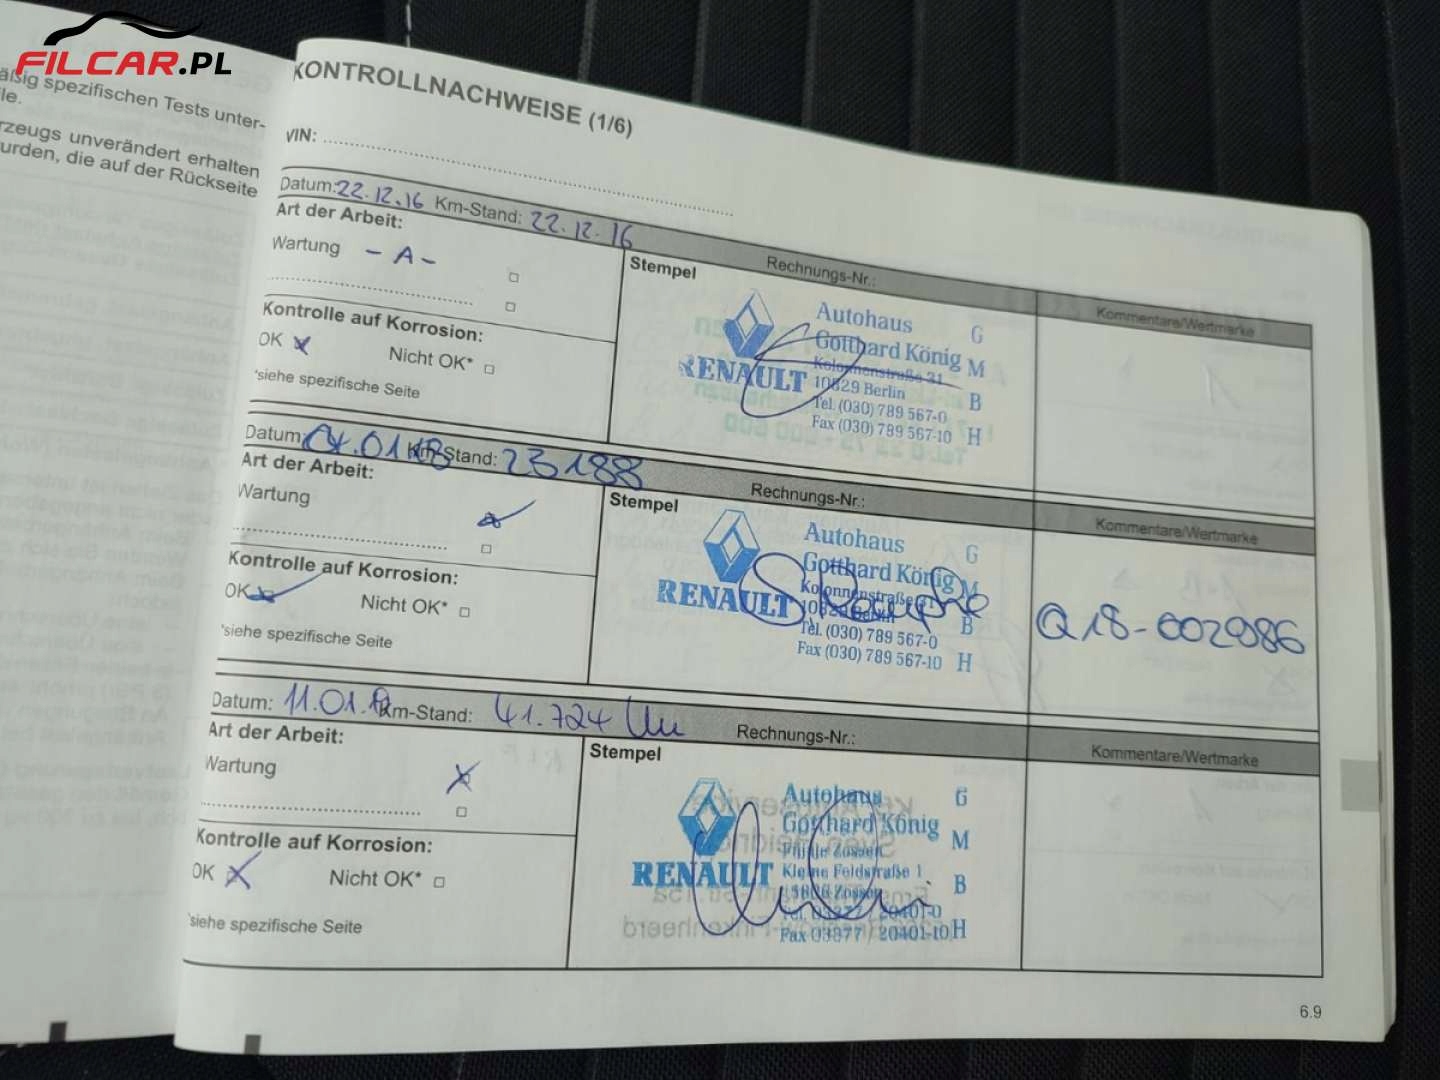 FILCAR.PL
äßig spezifischen Tests unter-
le.
rzeugs unverändert erhalten
urden, die auf der Rückseite
KONTROLLNACHWEISE (1/6)
VIN:
Datum: 22.12.16 Km-Stand: 22.12.16
Art der Arbeit:
Wartung - A -
Kontrolle auf Korrosion:
OK x Nicht OK*
*siehe spezifische Seite
Stempel
Rechnungs-Nr.:
RENAULT
Autohaus G
Gotthard König M
Kolonnenstraße 31
10829 Berlin B
Tel. (030) 789 567-0
Fax (030) 789 567-10 H
Kommentare/Wertmarke
Datum: 01.18 Km-Stand: 23188
Art der Arbeit:
Wartung
Kontrolle auf Korrosion:
OK Nicht OK*
*siehe spezifische Seite
Stempel
Rechnungs-Nr.:
RENAULT
Autohaus G
Gotthard König M
Kolonnenstraße 31
10829 Berlin B
Tel. (030) 789 567-0
Fax (030) 789 567-10 H
Kommentare/Wertmarke
Q18-002986
Datum: 11.01. Km-Stand: 41.724
Art der Arbeit:
Wartung x
Kontrolle auf Korrosion:
OK x Nicht OK*
*siehe spezifische Seite
Stempel
Rechnungs-Nr.:
RENAULT
Autohaus G
Gotthard König M
Filiale Zossen
Kleine Feldstraße 1 B
15806 Zossen
Tel. 03377 / 20401-0
Fax 03377 / 20401-10 H
Kommentare/Wertmarke
6.9